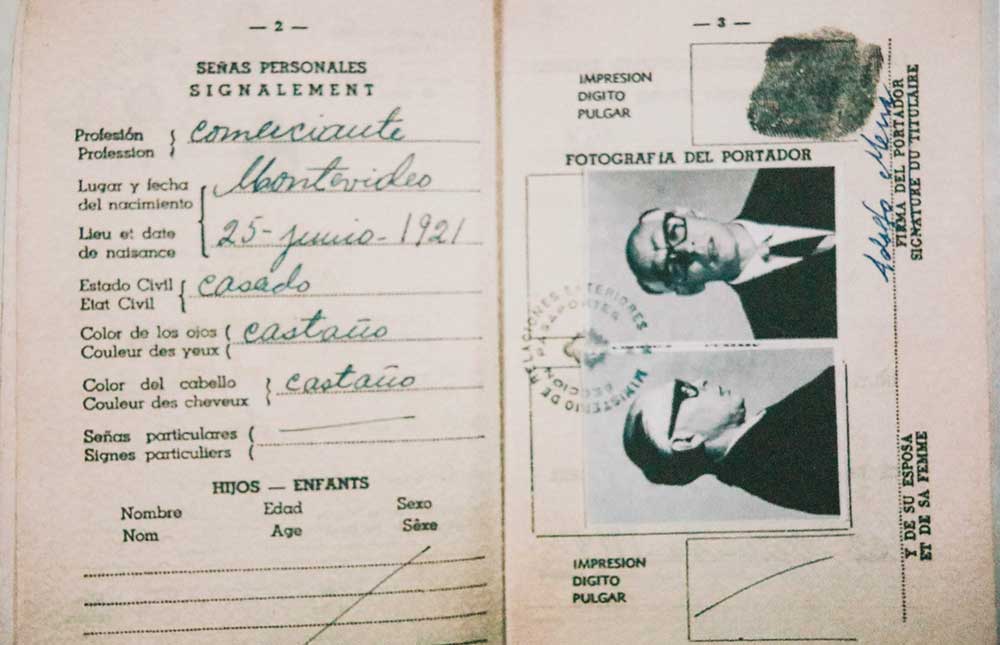 — 2 —
SEÑAS PERSONALES
SIGNALEMENT
Profesión
Profession
comerciante
Lugar y fecha
del nacimiento
Montevideo
Lieu et date
de naisance
25 - junio - 1921
Estado Civil
Etat Civil
casado
Color de los ojos
Couleur des yeux
castaño
Color del cabello
Couleur des cheveux
castaño
Señas particulares
Signes particuliers
HIJOS — ENFANTS
Nombre Edad Sexo
Nom Age Sêxe
— 3 —
IMPRESION
DIGITO
PULGAR
FOTOGRAFIA DEL PORTADOR
MINISTERIO DE RELACIONES EXTERIORES
SECCION PASAPORTES
Adolfo Mena
FIRMA DEL PORTADOR
SIGNATURE DU TITULAIRE
Y DE SU ESPOSA
ET DE SA FEMME
IMPRESION
DIGITO
PULGAR